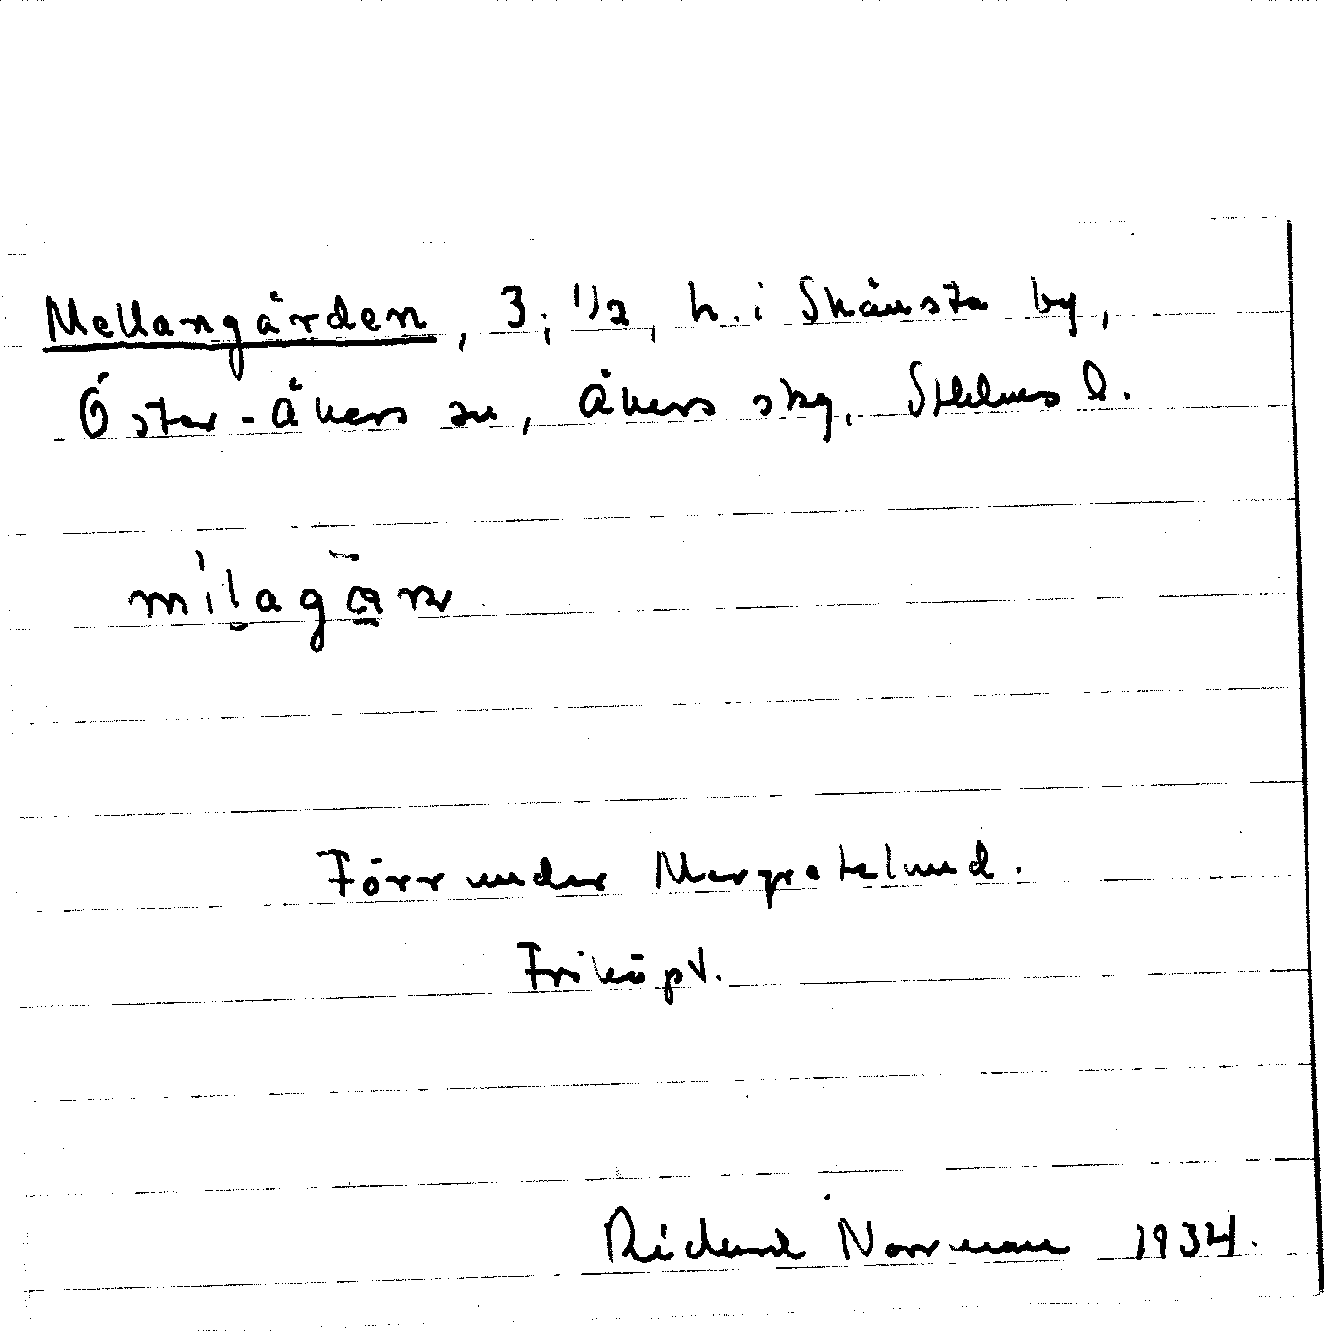 Mellangården, 3; 1/2, h. i Skånsta by,
Öster-Åkers sn, Åkers skg, Sthlms l.
Förr under Margretelund.
Friköpt.
Rickard Norrman 1934.